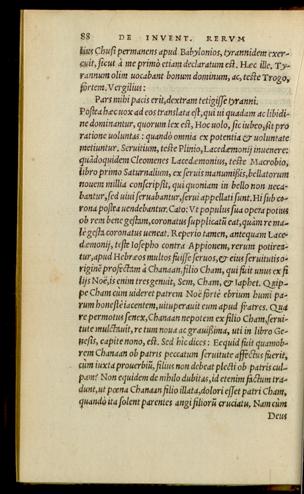 88 DE INVENT. RERVM
lius Chusi permanens apud Babylonios, tyrannidem exer-
cuit, sicut à me primò etiam declaratum est. Hæc ille. Ty-
rannum olim uocabant bonum dominum, ac, teste Trogo,
fortem. Vergilius:
Pars mihi pacis erit, dextram tetigisse tyranni.
Postea hæc uox ad eos translata est, qui ui quadam ac libidi-
ne dominantur, quorum lex est, Hoc uolo, sic iubeo, sit pro
ratione uoluntas: quando omnia ex potentia & uoluntate
metiuntur. Seruitium, teste Plinio, Lacedæmonij inuenere:
quãdoquidem Cleomenes Lacedæmonius, teste Macrobio,
libro primo Saturnalium, ex seruis manumissis, bellatorum
nouem millia conscripsit, qui quoniam in bello non neca-
bantur, sed uiui seruabantur, serui appellati sunt. Hi sub co-
rona postea uendebantur. Cato: Vt populus sua opera potius
ob rem bene gestam, coronatus supplicatũ eat, quàm re ma-
lè gesta coronatus ueneat. Reperio tamen, antequam Lace-
dæmonij, teste Iosepho contra Appionem, rerum potiren-
tur, apud Hebræos multos fuisse seruos, & eius seruitutis o-
riginẽ profectam à Chanaan, filio Cham, qui fuit unus ex fi
lijs Noë, is enim tres genuit, Sem, Cham, & Iaphet. Quip-
pe Cham cùm uideret patrem Noë fortè ebrium humi pa-
rum honestè iacentem, uituperauit eum apud fratres. Qua
re permotus senex, Chanaan nepotem ex filio Cham, serui-
tute mulctauit, re tum noua ac grauissima, uti in libro Ge-
nesis, capite nono, est. Sed hîc dices: Ecquid fuit quamob-
rem Chanaan ob patris peccatum seruitute affectus fuerit,
cùm iuxta prouerbiũ, filius non debeat plecti ob patris cul-
pam? Non equidem de nihilo dubitas, id etenim factum tra-
dunt, ut pœna Chanaan filio illata, dolori esset patri Cham,
quando ita solent parentes angi filiorũ cruciatu. Nam cùm
Deus